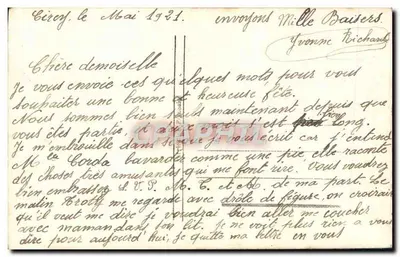 Cirey, le Mai 1921. envoyons Mille Baisers.
Yvonne Richard
Chère demoiselle
Je vous envoie ces quelques mots pour vous
souhaiter une bonne et heureuse fête.
Nous sommes bien seuls maintenant depuis que
vous êtes partis, c'est long.
Je m'embrouille dans ce que je vous écrit car j'entends
Mme Cerda bavarder comme une pie elle raconte
des choses très amusantes qui me font rire. Vous voudrez
bien embrasser et de ma part. Ce
matin me regarde avec drôle de figure, on croirait
qu'il veut me dire je voudrai bien aller me coucher
avec maman dans son lit. Je ne vois plus rien a vous
dire pour aujourd hui, je quitte ma lettre en vous